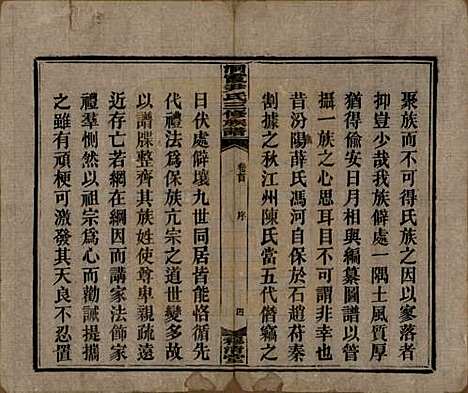 聚族而不可得氏族之因以寥落者
抑豈少哉我族僻處一隅土風質厚
猶得偷安日月相與編纂圖譜以管
攝一族之心思耳目不可謂非幸也
昔汾陽薛氏馮河自保於石趙苻秦
割據之秋江州陳氏當五代僭竊之
洞靈尹氏三修族譜
卷首
序
四
日伏處僻壤九世同居皆能恪循先
代禮法為保族亢宗之道世變多故
以譜牒整齊其族姓使尊卑親疏遠
近存亡若網在綱因而講家法飾家
禮羣惻然以祖宗為心而勸誡提攜
之雖有頑梗可激發其天良不忍置